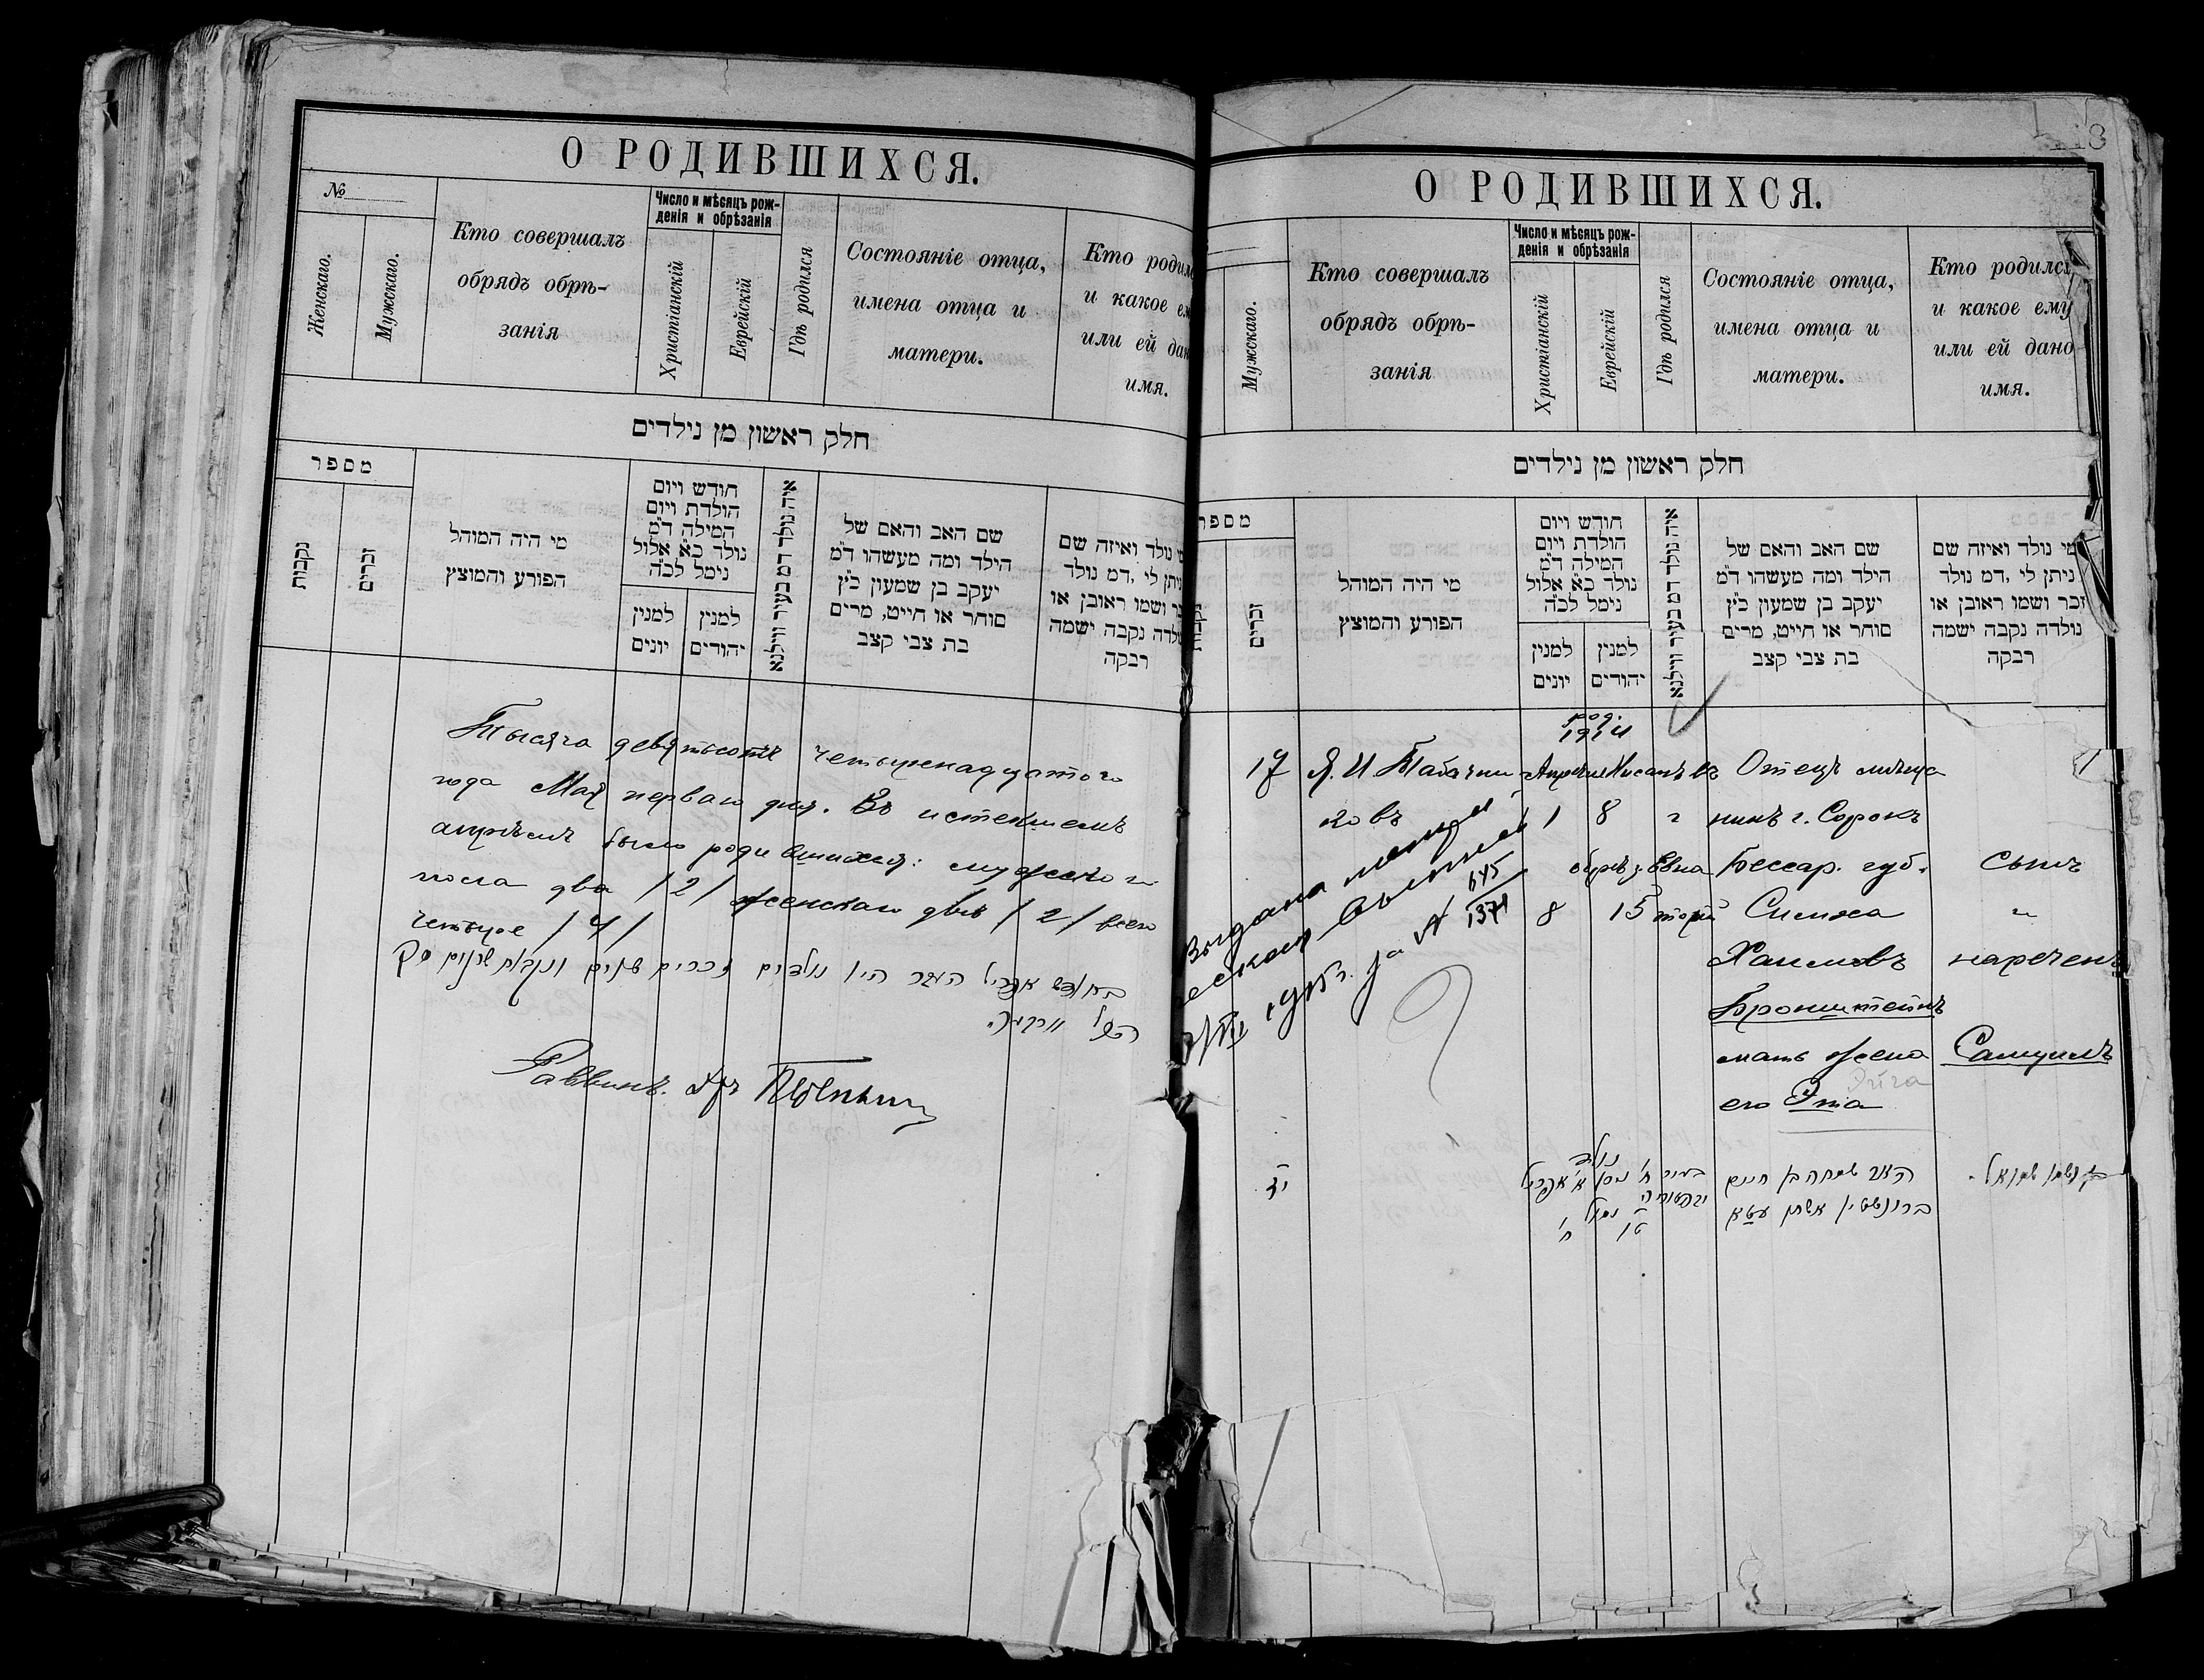 О РОДИВШИХСЯ.
№
Женскаго.
Мужскаго.
Кто совершалъ
обрядъ обрѣ-
занія
Число и мѣсяцъ рож-
денія и обрѣзанія
Христіанскій
Еврейскій
Гдѣ родился
Состояніе отца,
имена отца и
матери.
Кто родил
и какое ем
или ей дан
имя.
חלק ראשון מן נילדים
מספר
נקבות
זכרים
מי היה המוהל
הפורע והמוצץ
חודש ויום
הולדת ויום
המילה ד״מ
נולד כ״א אלול
נימל לכ״ה
למנין
יונים
למנין
יהודים
איה נולד דמ בעיר ווילנא
שם האב והאם של
הילד ומה מעשהו ד״מ
יעקב בן שמעון כ״ץ
סוחר או חייט, מרים
בת צבי קצב
י נולד ואיזה שם
יתן לי ,דמ נולד
כר ושמו ראובן או
ולדה נקבה ישמה
רבקה
Тысяча девятьсотъ четырнадцатого
года Мая перваго дня. Въ истекшемъ
апрѣлѣ было родившихся: мужского
пола два /2/ женскаго двѣ /2/ всего
четыре /4/
בחודש אפריל העבר היו נולדים זכרים שנים ונקבות שתים סך
הכל ארבעה
Раввинъ. Д-ръ
О РОДИВШИХСЯ.
Мужскаго.
Кто совершалъ
обрядъ обрѣ-
занія
Число и мѣсяцъ рож-
денія и обрѣзанія
Христіанскій
Еврейскій
Гдѣ родился
Состояніе отца,
имена отца и
матери.
Кто родился
и какое ему
или ей дано
имя.
חלק ראשון מן נילדים
מספר
זכרים
מי היה המוהל
הפורע והמוצץ
חודש ויום
הולדת ויום
המילה ד״מ
נולד כ״א אלול
נימל לכ״ה
למנין
יונים
למנין
יהודים
איה נולד דמ בעיר ווילנא
שם האב והאם של
הילד ומה מעשהו ד״מ
יעקב בן שמעון כ״ץ
סוחר או חייט, מרים
בת צבי קצב
מי נולד ואיזה שם
ניתן לי ,דמ נולד
זכר ושמו ראובן או
נולדה נקבה ישמה
רבקה
род.
1914
17 Я. И Табачни- Апрѣля Нисанъ Въ Отецъ мѣща
ковъ 1 8 г нинъ г. Сорокъ
обрѣз. Бессар. губ. сынъ
8 15 Симха
Хаимовъ нареченъ
Бронштейнъ
мать жена Самуилъ
его Эта
Выдана метри
ческая выпись
1915 г. за № 645
1371
נולד
יז
האב שמחה בן חיים
ברונשטיין אשתו עטא
בן ושמו שמואל